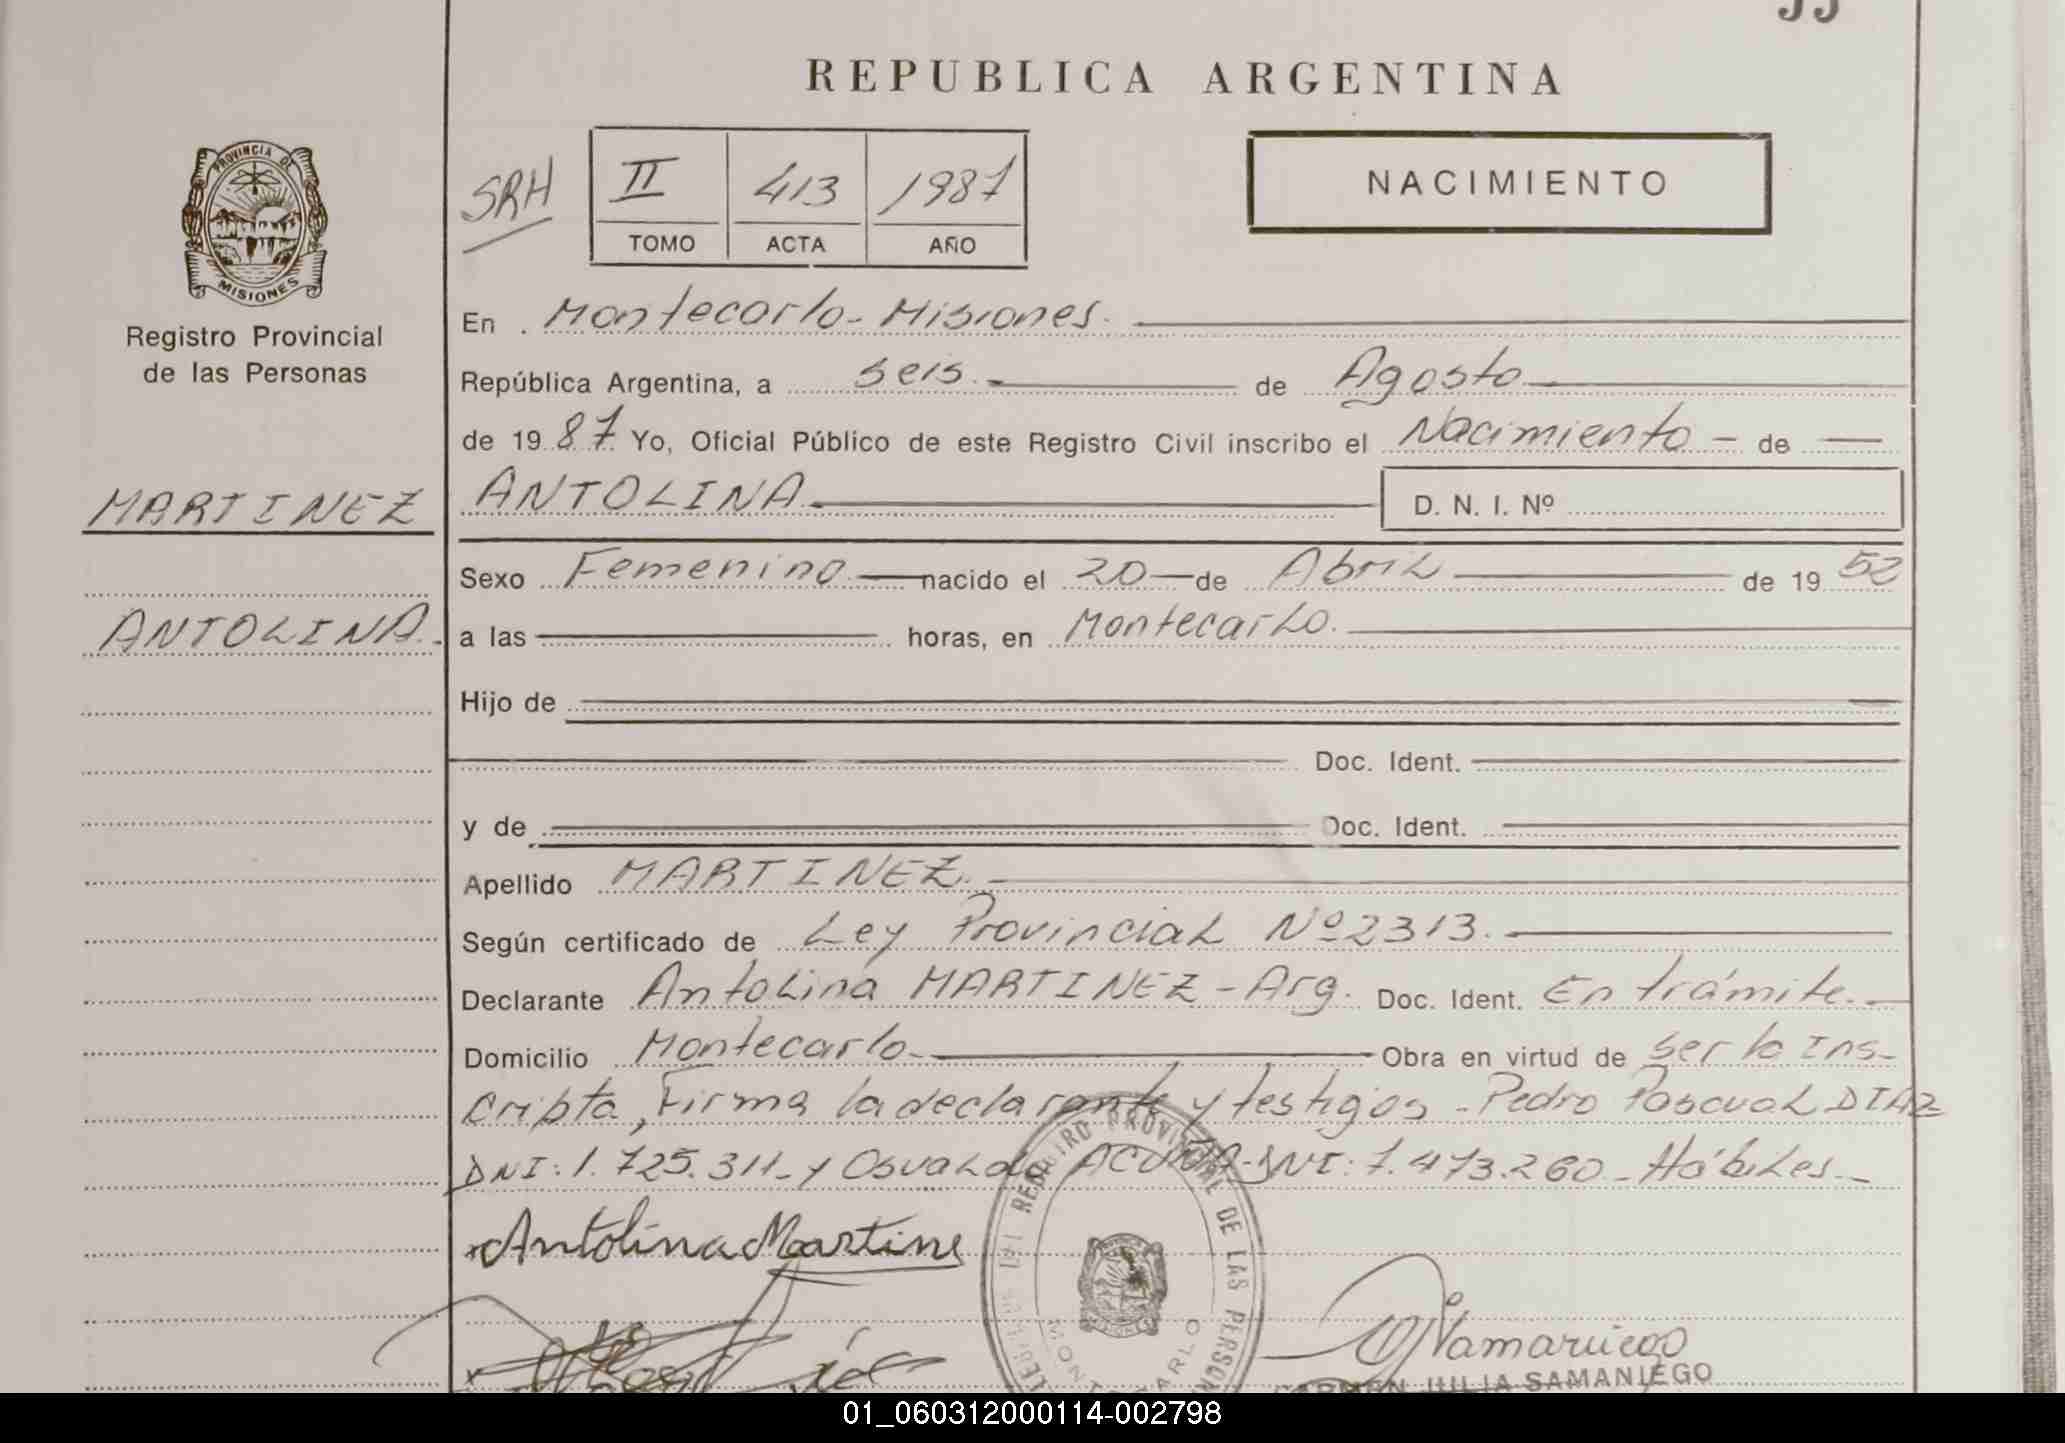 REPUBLICA ARGENTINA
PROVINCIA DE
MISIONES
Registro Provincial
de las Personas
SRH
II 413 1987
TOMO ACTA AÑO
NACIMIENTO
En . Montecarlo - Misiones.
República Argentina, a seis. de Agosto
de 19 87 Yo, Oficial Público de este Registro Civil inscribo el Nacimiento - de
MARTINEZ
ANTOLINA
D. N. I. Nº
Sexo Femenino nacido el 20 de Abril de 19 52
ANTOLINA.
a las horas, en Montecarlo.
Hijo de
Doc. Ident.
y de Doc. Ident.
Apellido MARTINEZ.
Según certificado de Ley Provincial Nº 2313.
Declarante Antolina MARTINEZ - Arg. Doc. Ident. En trámite.
Domicilio Montecarlo Obra en virtud de ser la Ins-
cripta, Firma la declarante y testigos - Pedro Pascual DIAZ
DNI: 1.725.311 - y Osvaldo ACUÑA - DNI: 7.473.260 - Hábiles.
x Antolina Martine
REGISTRO PROVINCIAL DE LAS PERSON
MONTECARLO
x
Samaniego
CARMEN JULIA SAMANIEGO
01_060312000114-002798